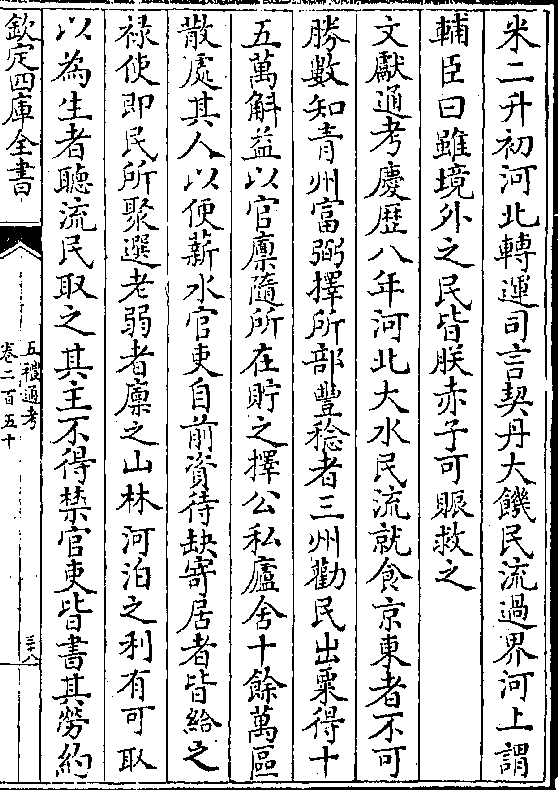 米二升初河北轉運司言契丹大饑民流過界河上謂
輔臣曰雖境外之民皆朕赤子可賑救之
文獻通考慶歷八年河北大水民流就食京東者不可
勝數知青州富弼擇所部豐稔者三州勸民出粟得十
五萬斛益以官廩隨所在貯之擇公私廬舍十餘萬區
散處其人以便薪水官吏自前資待缺寄居者皆給之
祿使即民所聚選老弱者廩之山林河泊之利有可取
以為生者聽流民取之其主不得禁官吏皆書其勞約
欽定四庫全書
五禮通考
卷二百五十
三十八